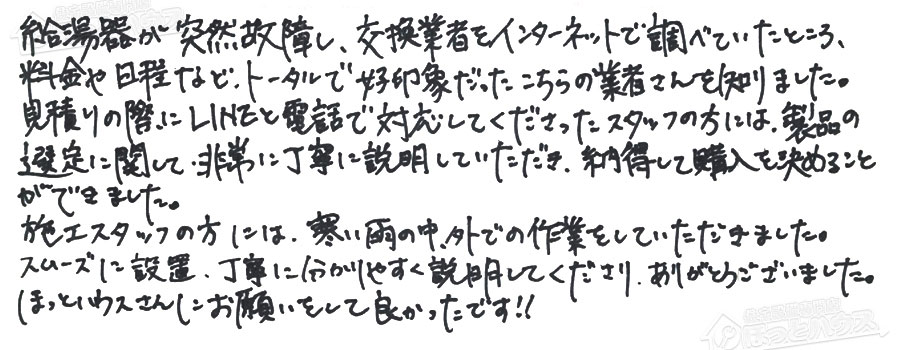 給湯器が突然故障し、交換業者をインターネットで調べていたところ、
料金や日程など、トータルで好印象だったこちらの業者さんを知りました。
見積りの際にLINEと電話で対応してくださったスタッフの方には、製品の
選定に関して非常に丁寧に説明していただき、納得して購入を決めること
ができました。
施工スタッフの方には、寒い雨の中、外での作業をしていただきました。
スムーズに設置、丁寧に分かりやすく説明してくださり、ありがとうございました。
ほっとハウスさんにお願いをして良かったです!!
ほっとハウス